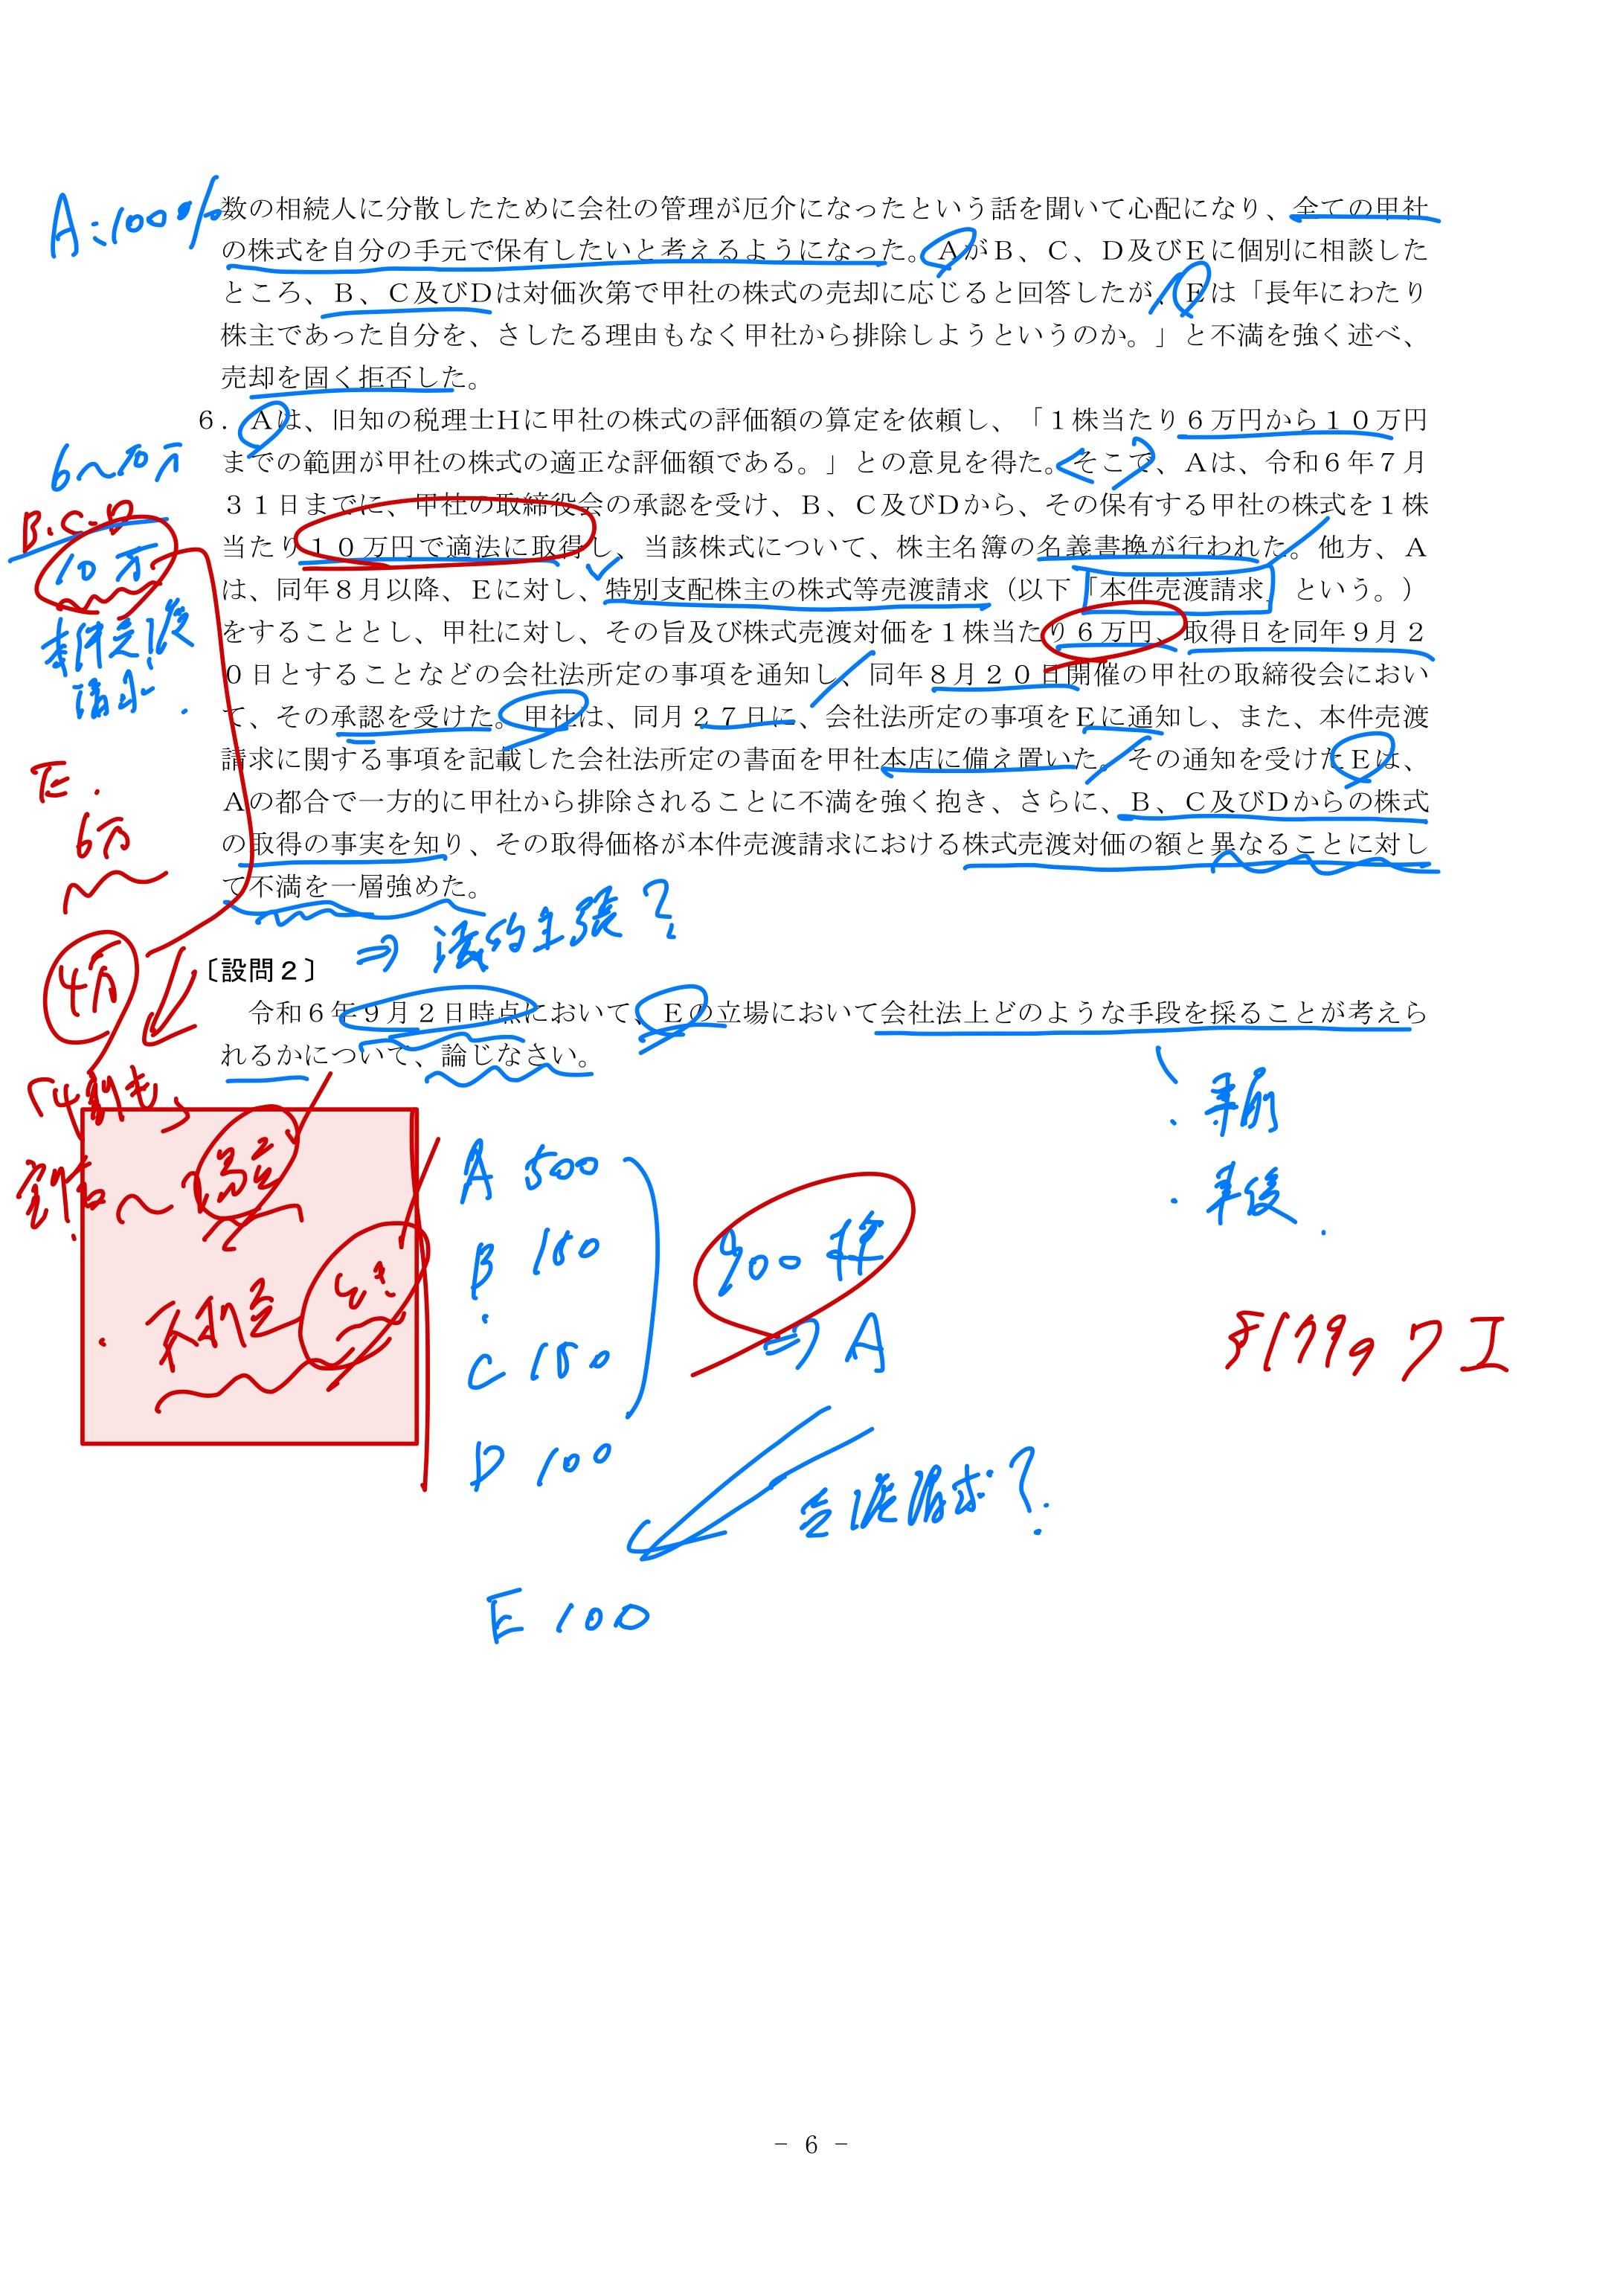 A:100%
数の相続人に分散したために会社の管理が厄介になったという話を聞いて心配になり、全ての甲社
の株式を自分の手元で保有したいと考えるようになった。AがB、C、D及びEに個別に相談した
ところ、B、C及びDは対価次第で甲社の株式の売却に応じると回答したが、Eは「長年にわたり
株主であった自分を、さしたる理由もなく甲社から排除しようというのか。」と不満を強く述べ、
売却を固く拒否した。
6．Aは、旧知の税理士Hに甲社の株式の評価額の算定を依頼し、「1株当たり6万円から10万円
までの範囲が甲社の株式の適正な評価額である。」との意見を得た。そこで、Aは、令和6年7月
31日までに、甲社の取締役会の承認を受け、B、C及びDから、その保有する甲社の株式を1株
当たり10万円で適法に取得し、当該株式について、株主名簿の名義書換が行われた。他方、A
は、同年8月以降、Eに対し、特別支配株主の株式等売渡請求（以下「本件売渡請求」という。）
をすることとし、甲社に対し、その旨及び株式売渡対価を1株当たり6万円、取得日を同年9月2
0日とすることなどの会社法所定の事項を通知し、同年8月20日開催の甲社の取締役会におい
て、その承認を受けた。甲社は、同月27日に、会社法所定の事項をEに通知し、また、本件売渡
請求に関する事項を記載した会社法所定の書面を甲社本店に備え置いた。その通知を受けたEは、
Aの都合で一方的に甲社から排除されることに不満を強く抱き、さらに、B、C及びDからの株式
の取得の事実を知り、その取得価格が本件売渡請求における株式売渡対価の額と異なることに対し
て不満を一層強めた。
6〜10万
B.C.D
10万
本件売渡
請求
E.
6万
4万
⇒ 法的主張？
〔設問2〕
令和6年9月2日時点において、Eの立場において会社法上どのような手段を採ることが考えら
れるかについて、論じなさい。
・事前
・事後
「4割も」
A 500
B 150
C 150
D 100
900株
⇒ A
§179の7 I
売渡請求？
E 100
- 6 -